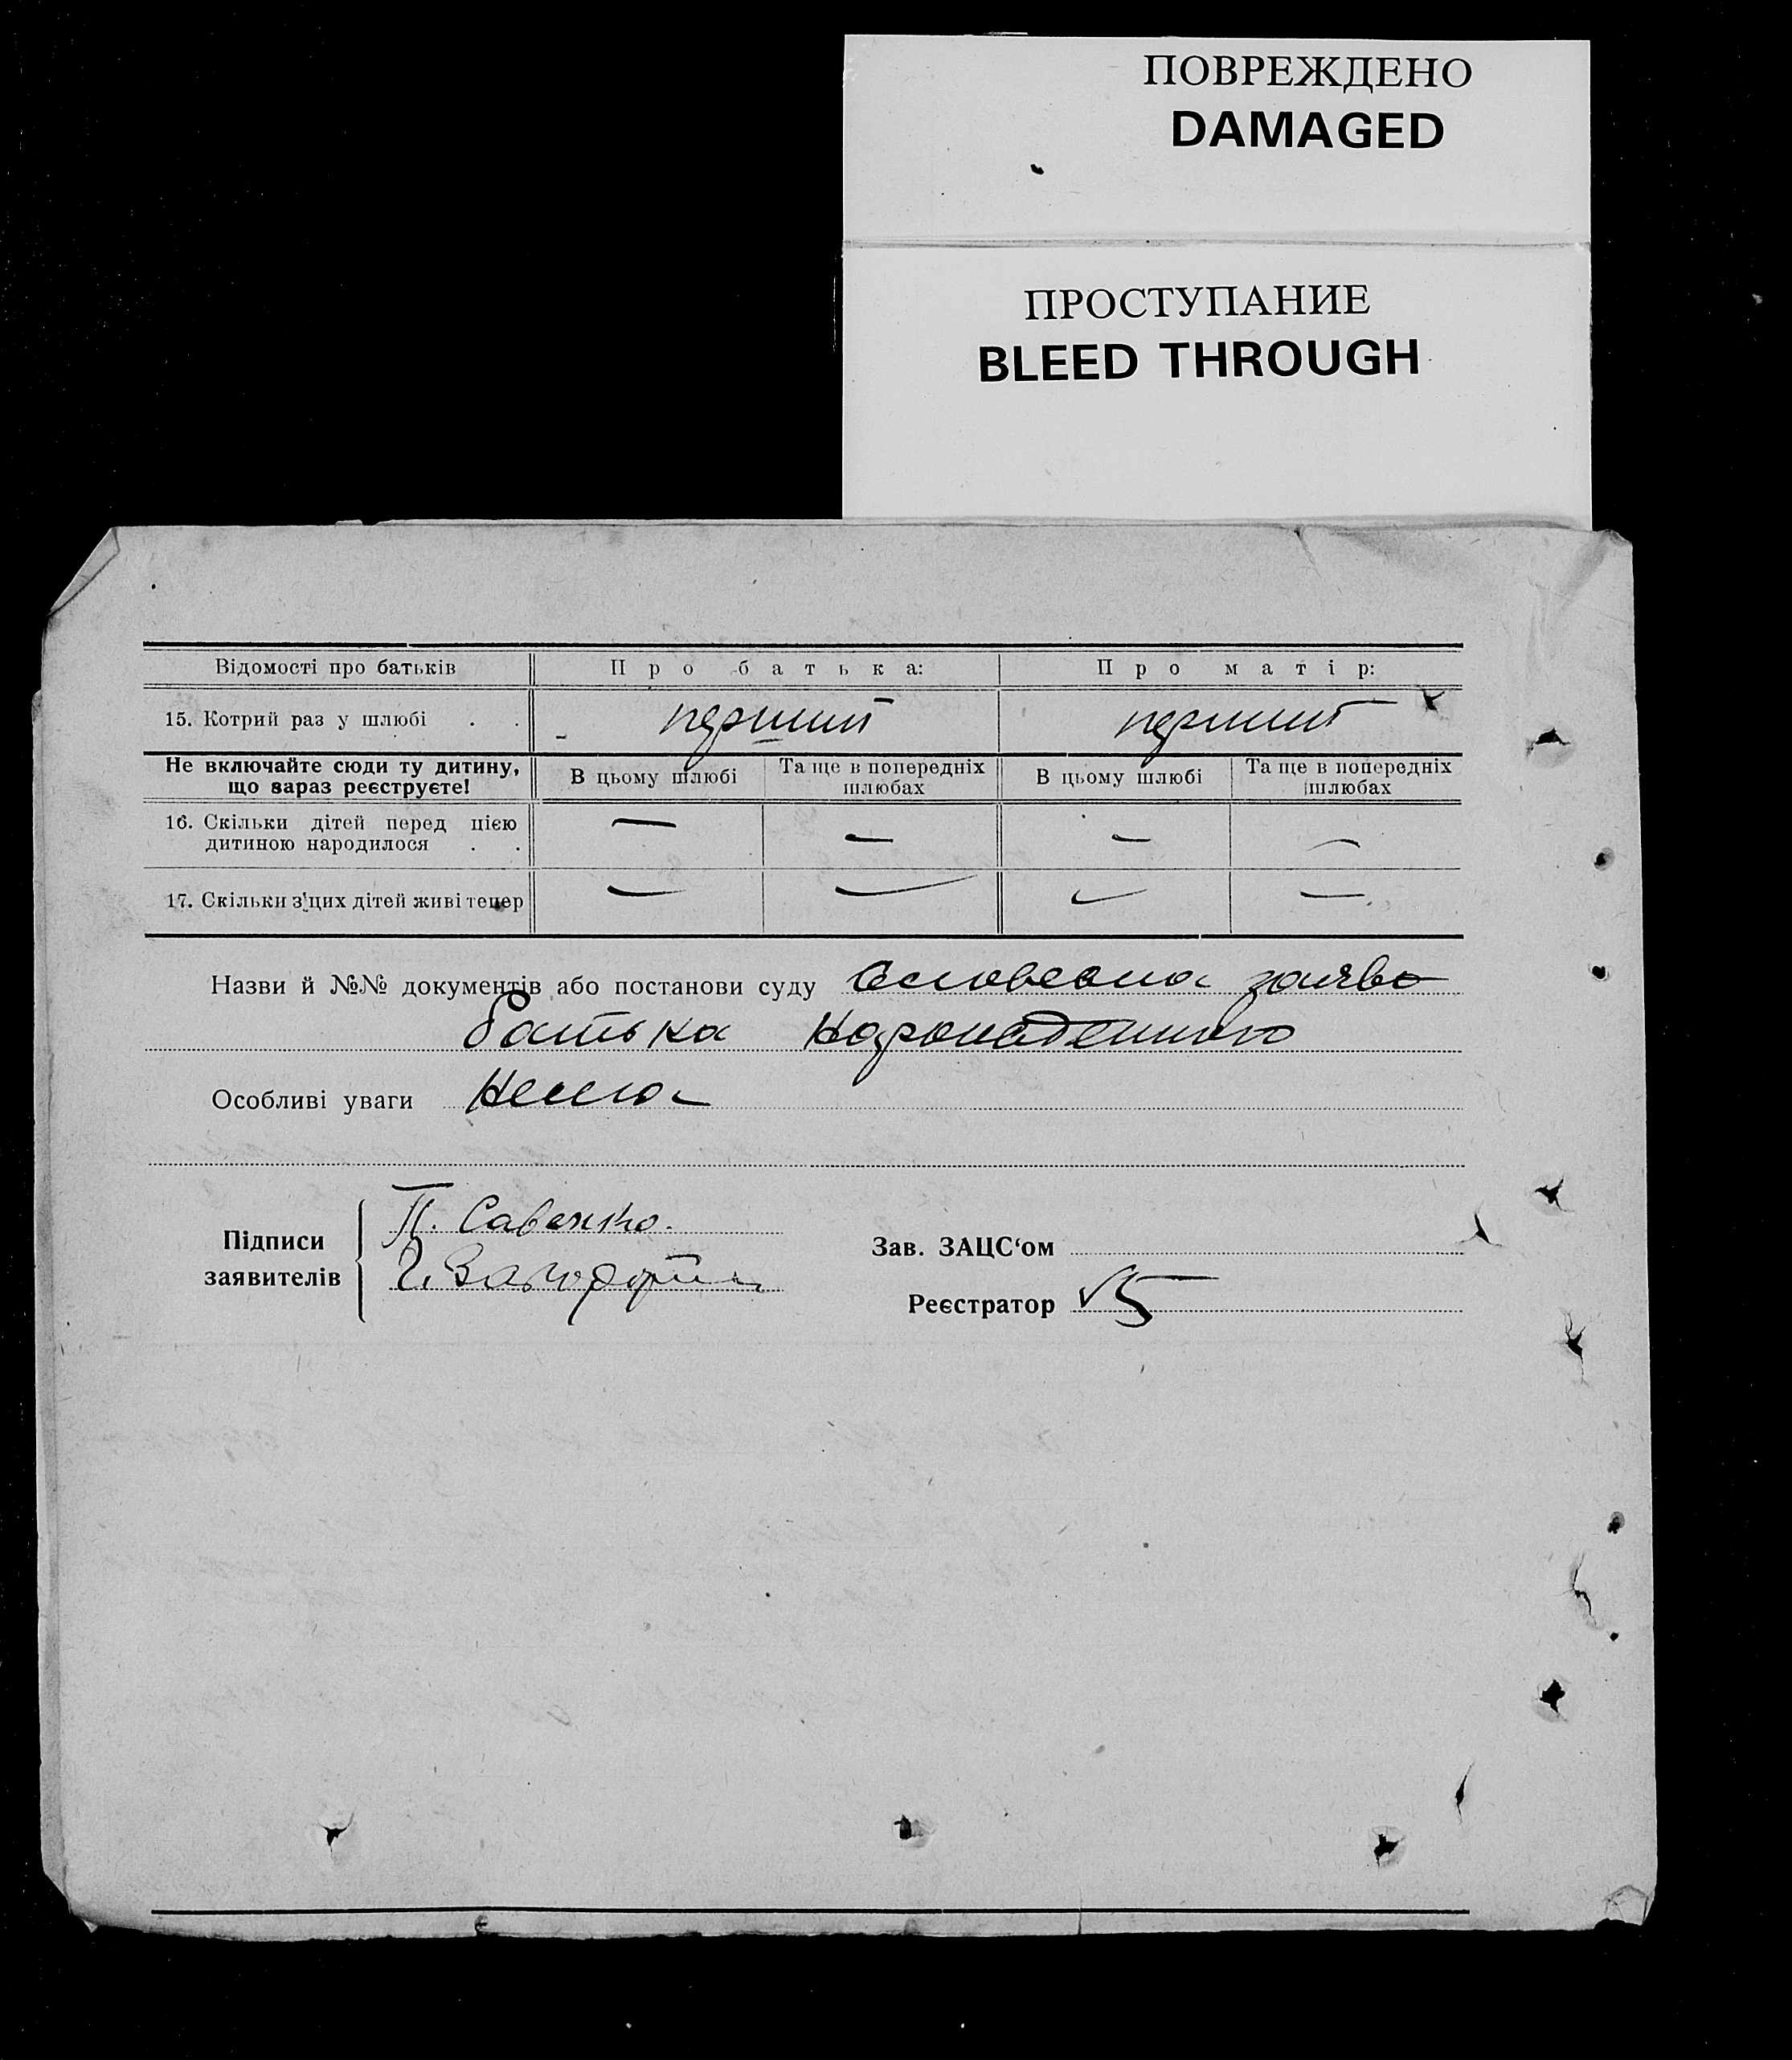 ПОВРЕЖДЕНО
DAMAGED
ПРОСТУПАНИЕ
BLEED THROUGH
Відомості про батьків Про батька: Про матір:
15. Котрий раз у шлюбі . . перший перший
Не включайте сюди ту дитину, що зараз реєструєте! В цьому шлюбі Та ще в попередніх шлюбах В цьому шлюбі Та ще в попередніх шлюбах
16. Скільки дітей перед цією дитиною народилося . . — — — —
17. Скільки з цих дітей живі тепер — — — —
Назви й №№ документів або постанови суду Словесна заява
батька народженого
Особливі уваги Нема
Підписи заявителів
П. Савенко.
Зав. ЗАЦС'ом
Реєстратор